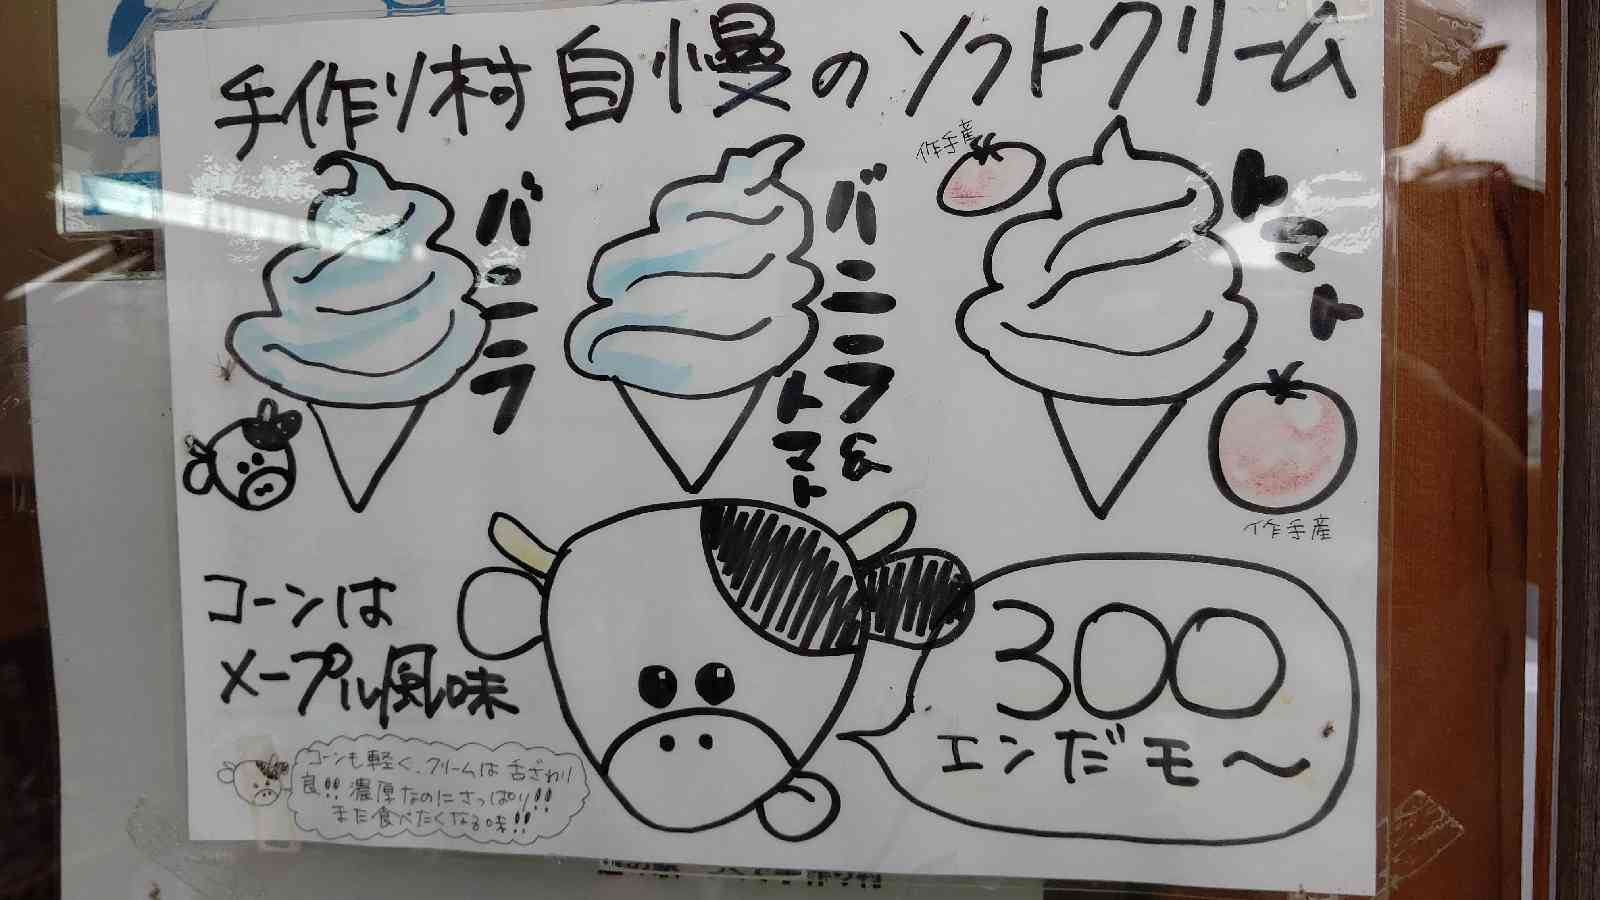 手作り村自慢のソフトクリーム
バニラ
バニラ&
トマト
作手産
トマト
作手産
コーンは
メープル風味
300
エンだモ〜
コーンも軽く、クリームは舌ざわり
良!!濃厚なのにさっぱり!!
また食べたくなる味!!